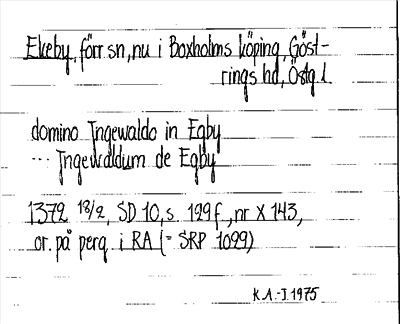 Ekeby, förr sn, nu i Boxholms köping, Göst-
rings hd, Östg l
domino Ingewaldo in Egby
... Ingewaldum de Egby
1372 18/2, SD 10, s. 129 f., nr X 143,
or. på perg. i RA (= SRP 1099)
K.A.-J. 1975